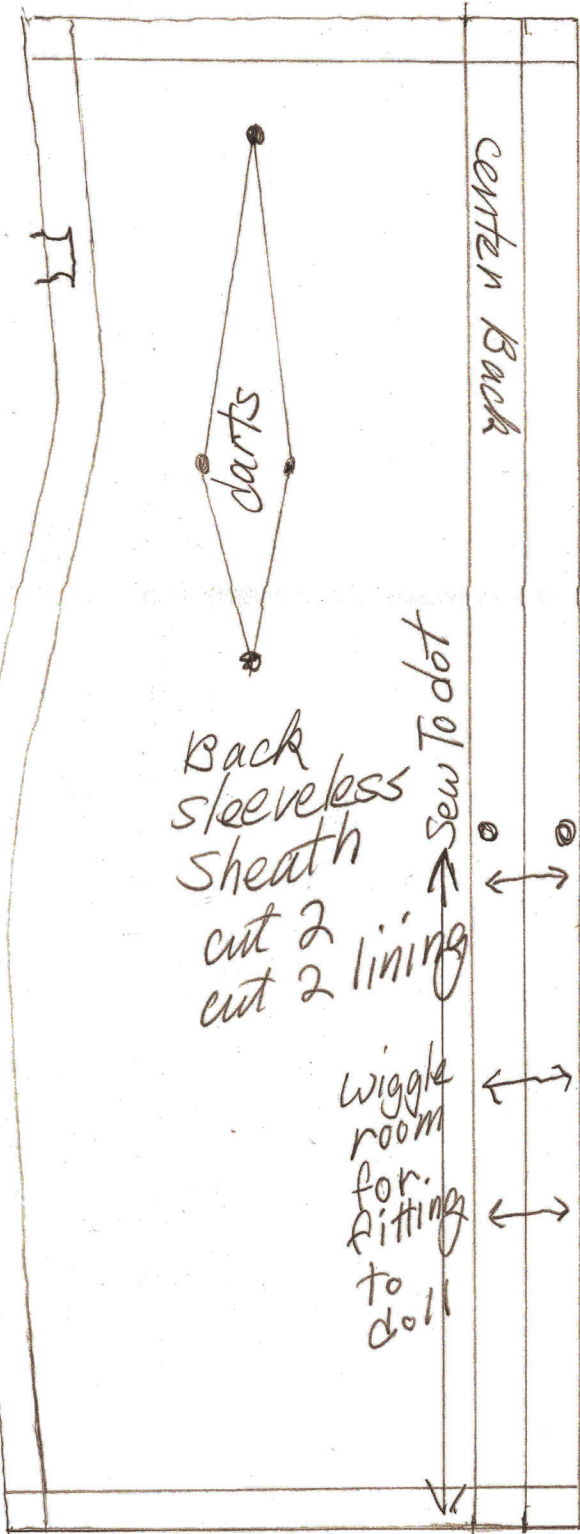 center Back
darts
Sew To dot
Back
sleeveless
Sheath
cut 2
cut 2 lining
wiggle
room
for
fitting
to
doll